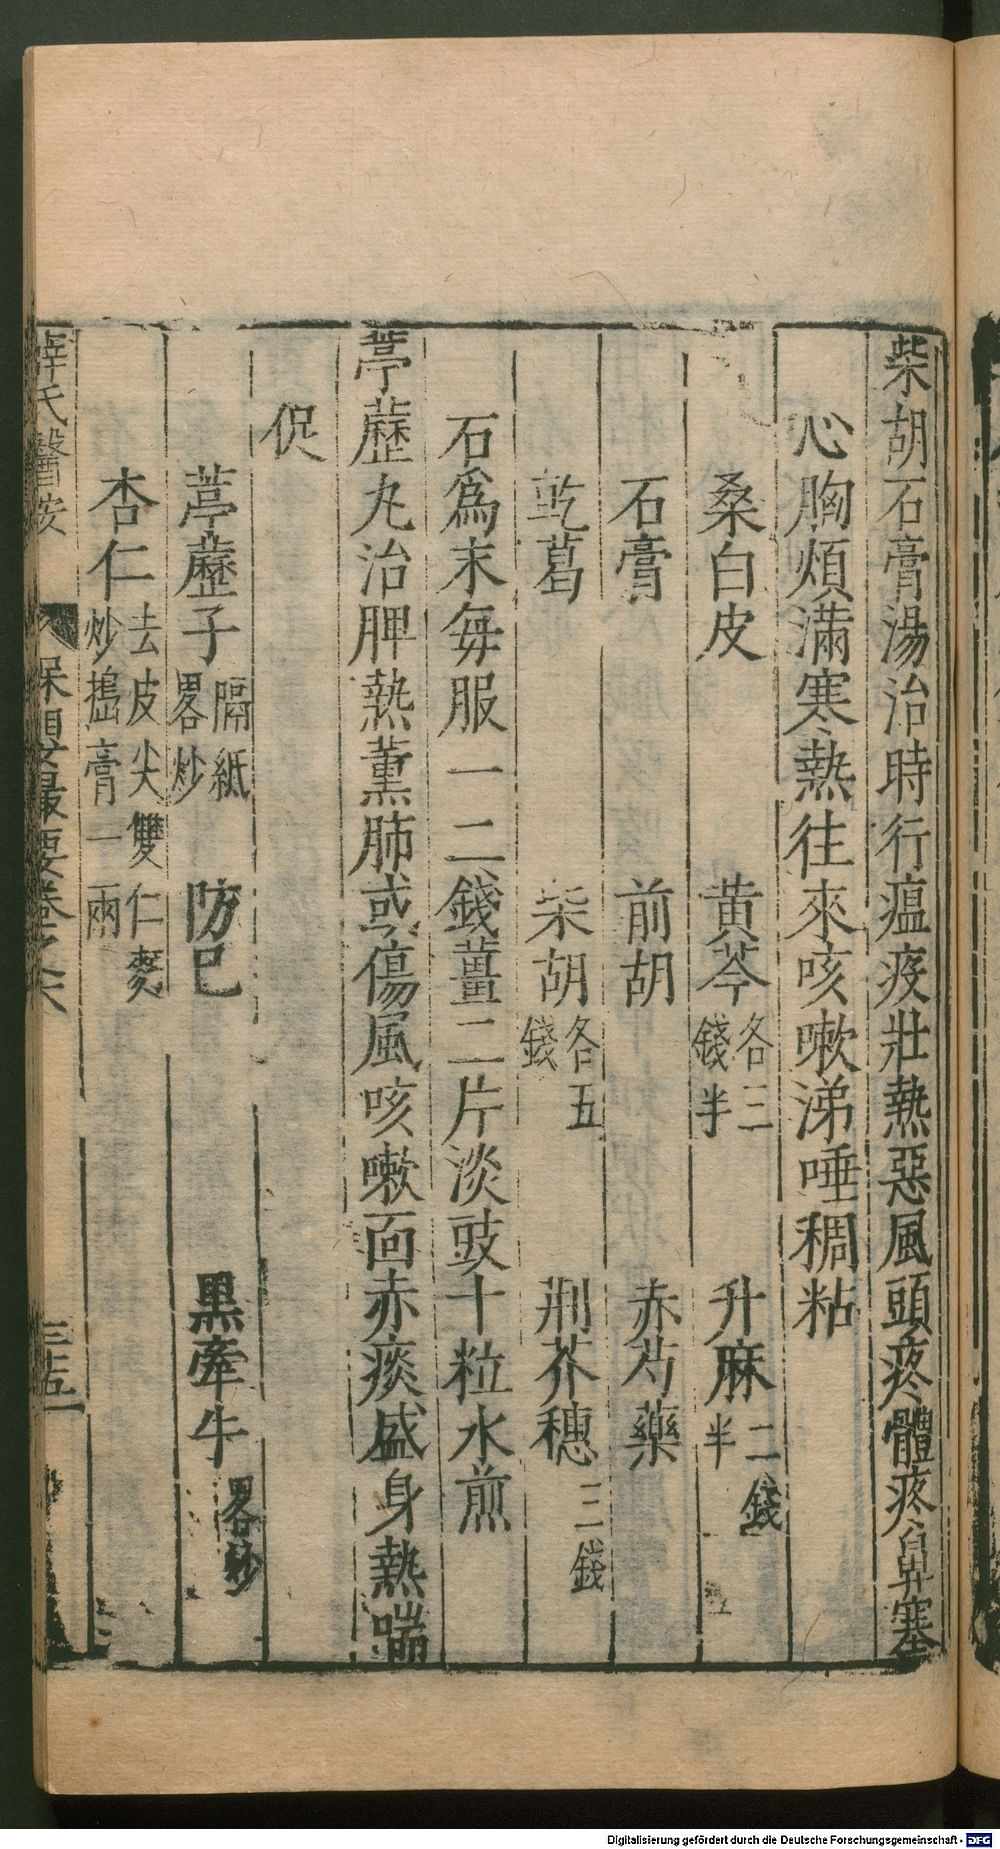 柴胡石膏湯治時行瘟疫壯熱惡風頭疼體疼鼻塞
心胸煩滿寒熱往來咳嗽涕唾稠粘
桑白皮　黄芩各三錢半　升麻二錢半
石膏　前胡　赤芍藥
乾葛　柴胡各五錢　荆芥穗三錢
石為末每服一二錢薑二片淡豉十粒水煎
葶藶丸治脾熱薰肺或傷風咳嗽面赤痰盛身熱喘
促
葶藶子隔紙畧炒　防己　黒牽牛畧炒
杏仁去皮尖雙仁麩炒搗膏一兩
薛氏醫按　保嬰最要卷之六　三五
Digitalisierung gefördert durch die Deutsche Forschungsgemeinschaft - DFG